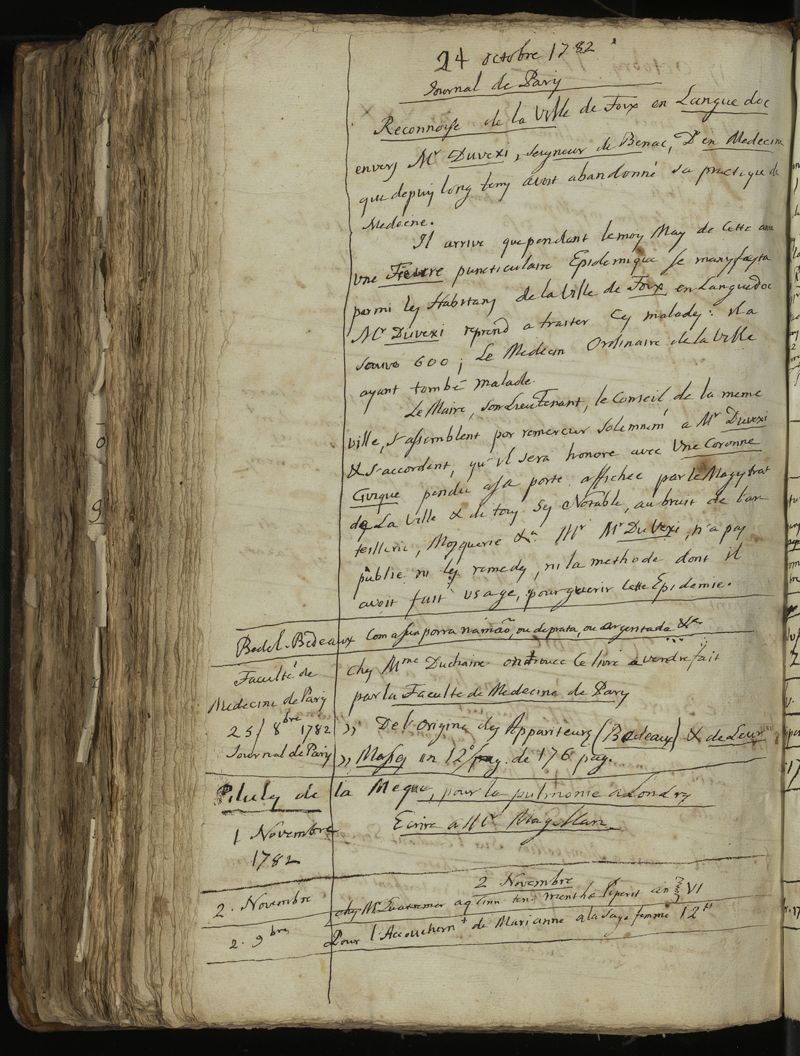 24 octobre 1782
Journal de Pariz
Reconnoise de la Ville de Foix en Langue doc
envers Mr Duvexi, Seigneur de Benac, Dr en Medecine
que depuis long tems avoit abandonné sa practique de
Medecine.
Il arrive que pendant le moy May de Cette ann
une Fievre puncticulaire Epidemique se manyfesta
parmi les Habitans de la Ville de Foix en Languedoc
Mr Duvexi reprend a traiter Ces malades: il a
sauvé 600; Le Medecin Ordinaire de la Ville
ayant tombé malade.
Le Maire, son Lieutenant, le Conseil de la meme
ville, s'assemblent por remercier Solemnim a Mr Duvexi
& s'accordent, qu'il sera honore avec Une Coronne
Civique pendu a sa porte affichee par le Magistrat
de La Ville & de tous Ses Notable, au bruit de l'ar
teillerie, Mosquerie &a. Mr Duvexi, n'a pas
publie ni les remedes, ni la methode dont il
avoit fait usage, pour guerir cette Epidemie.
Bedel-Bedeaux Com a sua porra na mão, ou de prata, ou argentada &a
Faculté de
Medecine de Pariz
25/ 8bre 1782
Journal de Pariz
Chez Mme Duchaine on trouve Ce livre a vendre fait
par la Faculté de Medecine de Pary
,, De l'Origine des Appariteurs (Bedeaux) & de Leur
,, Masses in 12º de 176 pag.
Pilules de la Meque, pour la pulmonie a Londres
1 Novembre
1782
Ecrire a Mr Magellan.
2 Novembre
2. Novembre
chez Mr aq Cinn ten: mentha Piperit an ℥ VI
2. 9bre
Pour l'Accouchem+ de Marianne a la Sage femme 12 tt